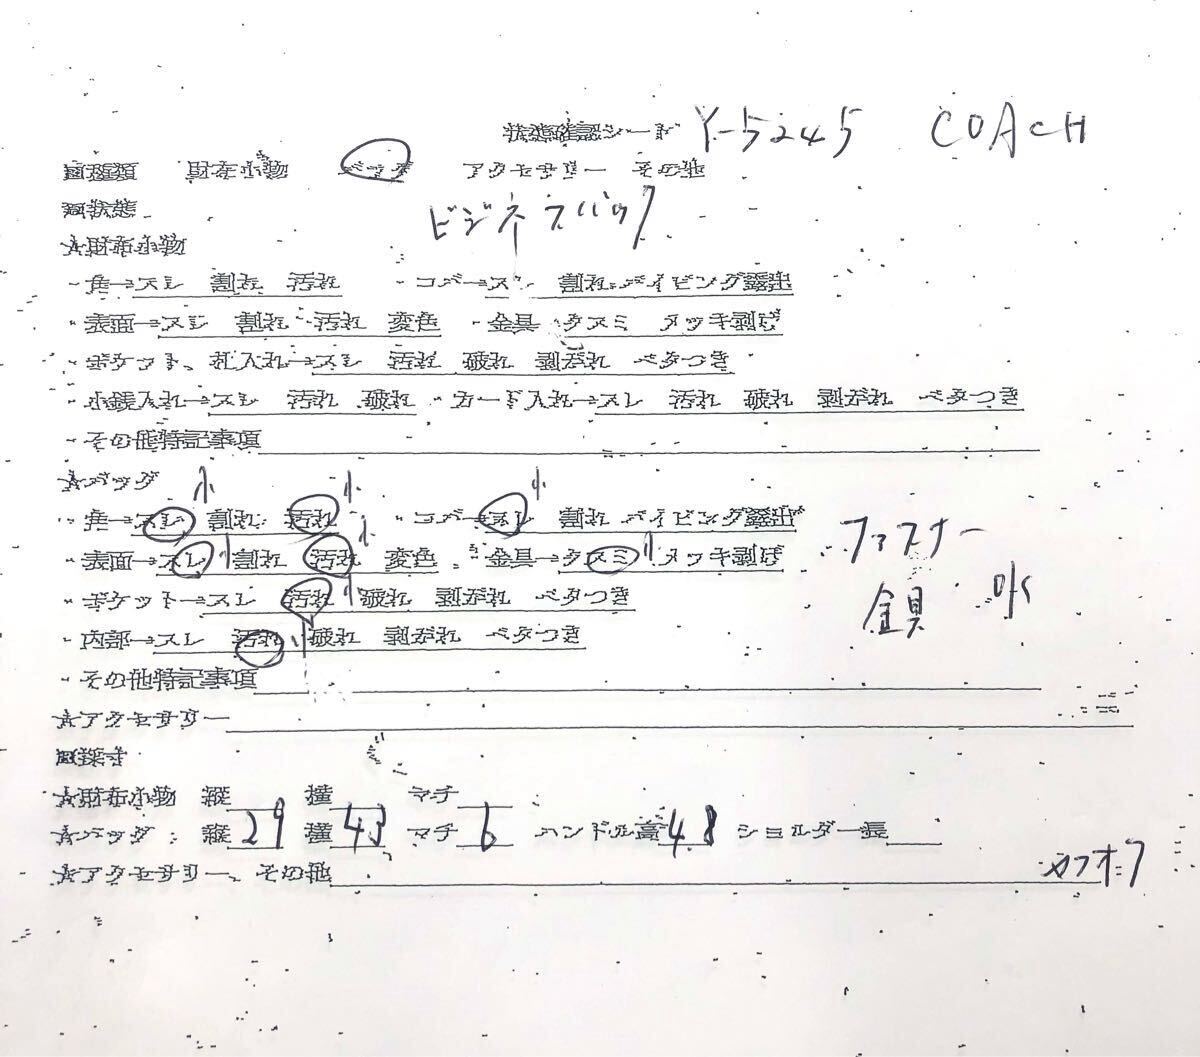 状態確認シート Y-5245 COACH
■種類 財布小物 バッグ アクセサリー その他
■状態 ビジネスバック
☆財布小物
・角→スレ 割れ 汚れ ・コバ→スレ 割れ パイピング露出
・表面→スレ 割れ 汚れ 変色 ・金具→クスミ メッキ剥げ
・ポケット、札入れ→スレ 汚れ 破れ 剥がれ ベタつき
・小銭入れ→スレ 汚れ 破れ ・カード入れ→スレ 汚れ 破れ 剥がれ ベタつき
・その他特記事項
☆バッグ 小 小 小
・角→スレ 割れ 汚れ ・コバ→スレ 割れ パイピング露出
・表面→スレ 小 割れ 汚れ 小 変色 ・金具→クスミ 小 メッキ剥げ ファスナー
・ポケット→スレ 汚れ 小 破れ 剥がれ ベタつき 金具 小
・内部→スレ 汚れ 小 破れ 剥がれ ベタつき
・その他特記事項
☆アクセサリー
■採寸
☆財布小物 縦 横 マチ
☆バッグ : 縦 29 横 43 マチ 6 ハンドル高 48 ショルダー長
☆アクセサリー、その他